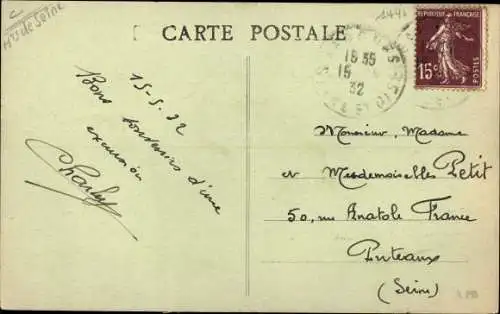 Hts de Seine
CARTE POSTALE
REPUBLIQUE FRANÇAISE
15c
POSTES
18 35
15
32
SEINE ET OISE
15-5-32
Bons souvenirs d'une
excursion
Charley
Monsieur, Madame
et Mesdemoiselles Petit
50, rue Anatole France
Puteaux
(Seine)